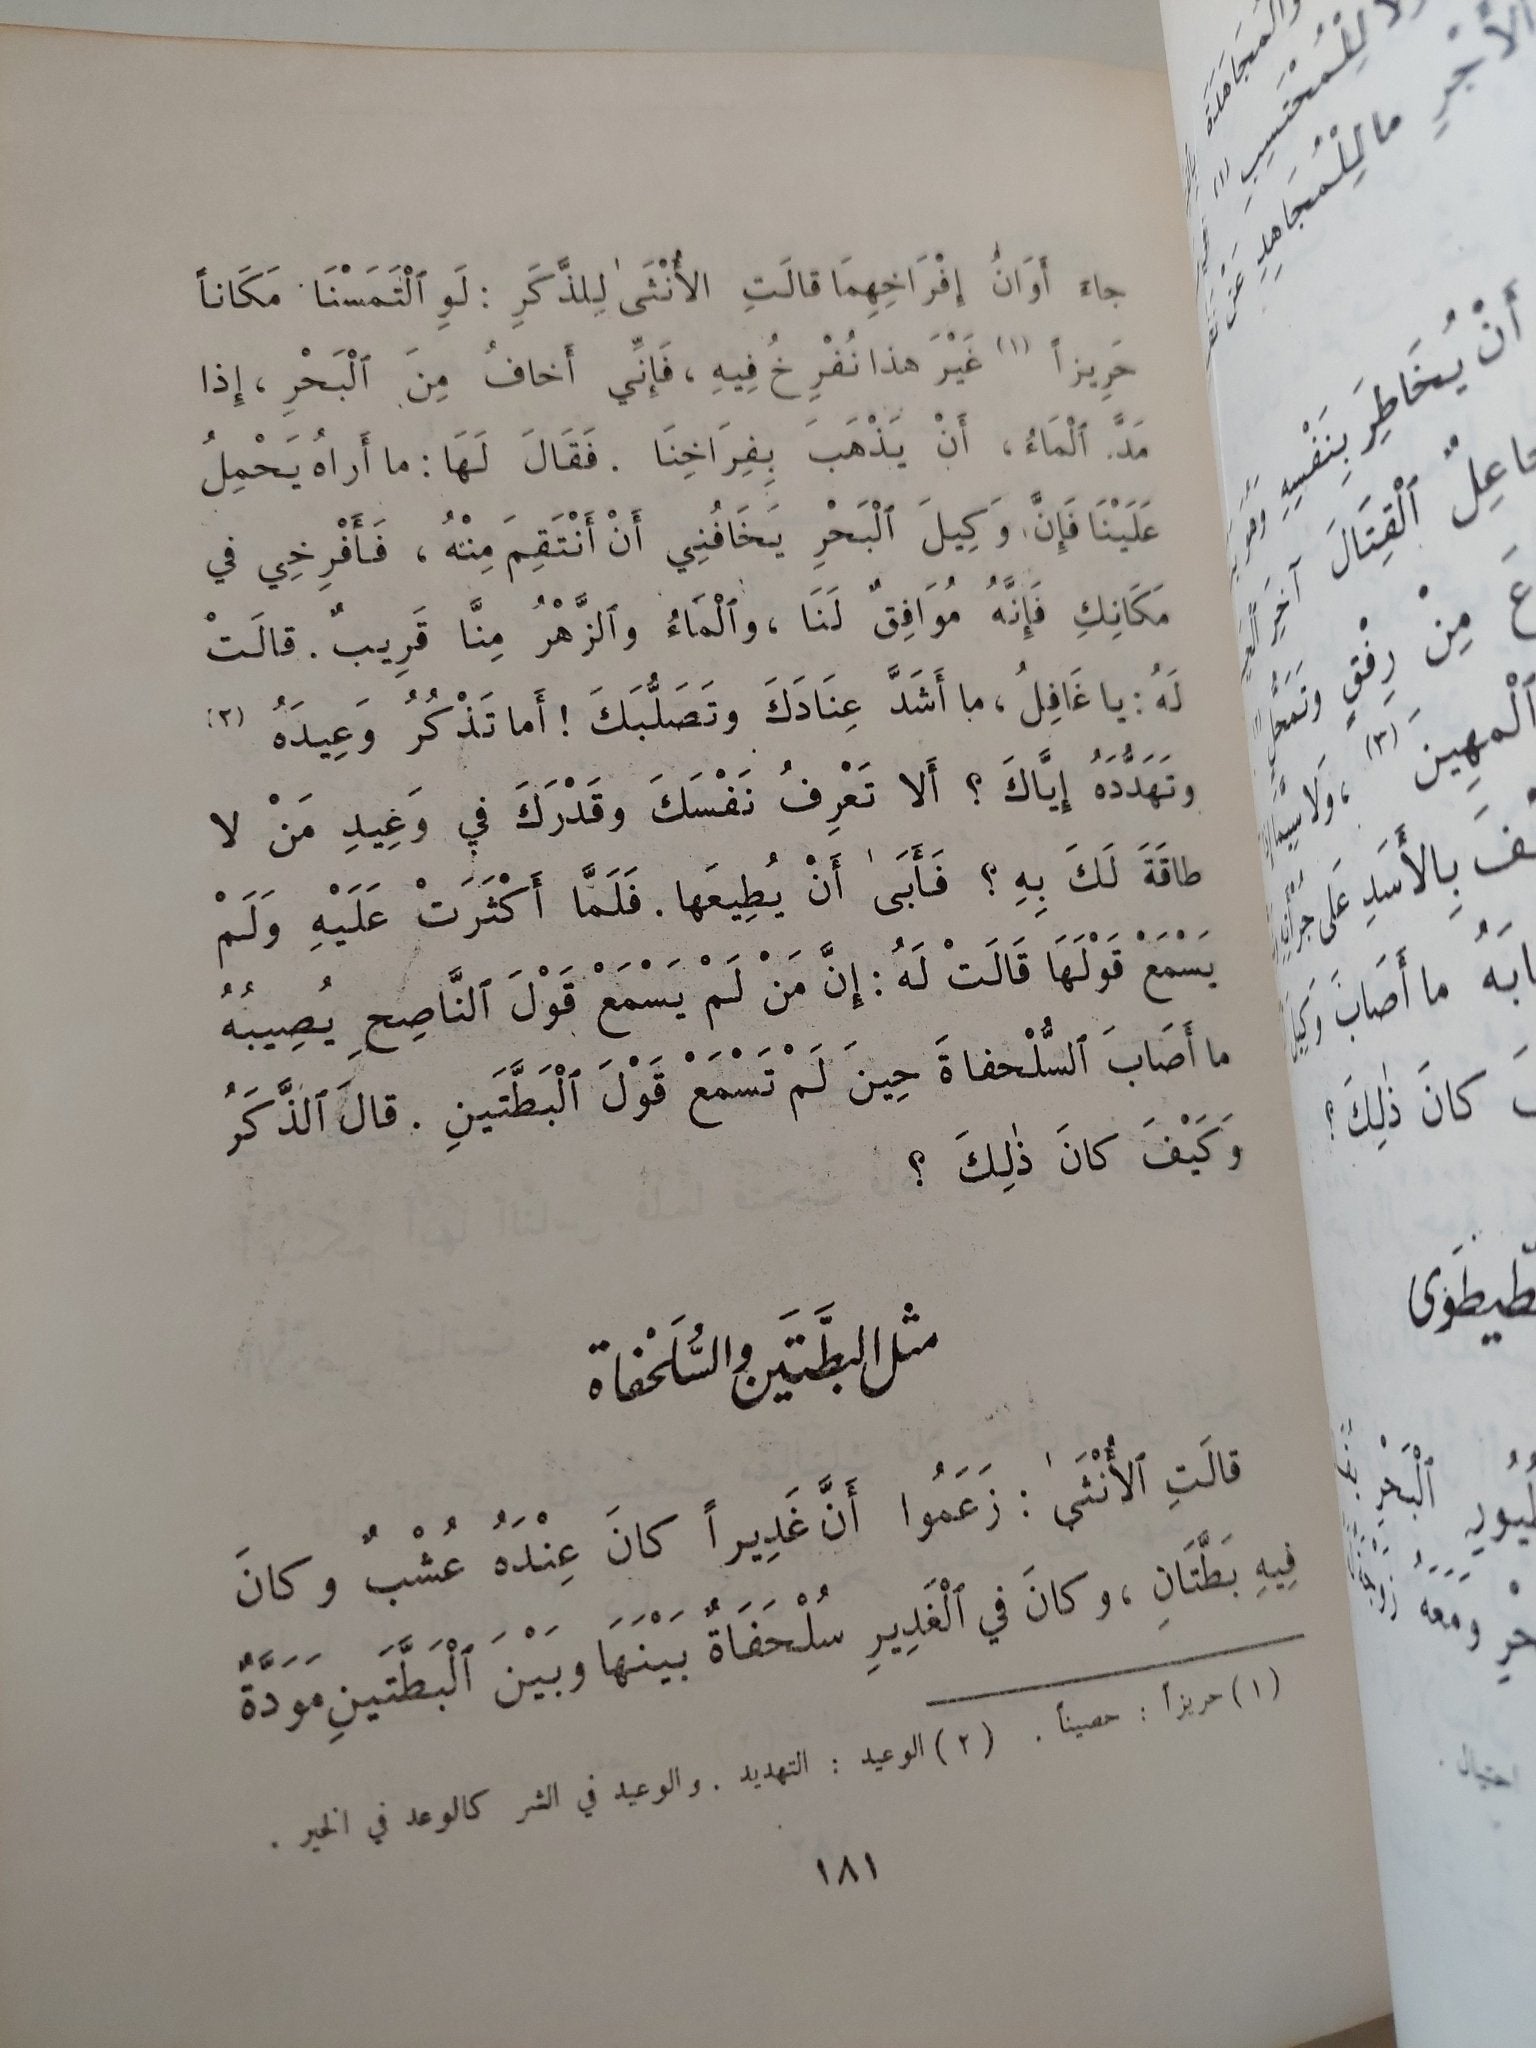 جاءَ أَوَانُ إِفْرَاخِهِمَا قالَتِ الأُنْثَىٰ لِلذَّكَرِ : لَوِ ٱلْتَمَسْنَا مَكَاناً
حَرِيزاً (١) غَيْرَ هذا نُفْرِخُ فِيهِ ، فَإِنِّي أَخافُ مِنَ ٱلْبَحْرِ ، إِذا
مَدَّ ٱلْمَاءُ ، أَنْ يَذْهَبَ بِفِرَاخِنَا . فَقَالَ لَهَا : ما أَراهُ يَحْمِلُ
عَلَيْنَا فَإِنَّ وَكِيلَ ٱلْبَحْرِ يَخَافُنِي أَنْ أَنْتَقِمَ مِنْهُ ، فَأَفْرِخِي في
مَكَانِكِ فَإِنَّهُ مُوَافِقٌ لَنَا ، وٱلْمَاءُ وٱلزَّهْرُ مِنَّا قَرِيبٌ . قالَتْ
لَهُ : يا غَافِلُ ، ما أَشَدَّ عِنَادَكَ وتَصَلُّبَكَ ! أَما تَذْكُرُ وَعِيدَهُ (٢)
وتَهَدُّدَهُ إِيَّاكَ ؟ أَلا تَعْرِفُ نَفْسَكَ وقَدْرَكَ في وَعِيدِ مَنْ لا
طاقَةَ لَكَ بِهِ ؟ فَأَبَىٰ أَنْ يُطِيعَها . فَلَمَّا أَكْثَرَتْ عَلَيْهِ وَلَمْ
يَسْمَعْ قَوْلَهَا قَالَتْ لَهُ : إِنَّ مَنْ لَمْ يَسْمَعْ قَوْلَ ٱلنَّاصِحِ يُصِيبُهُ
ما أَصَابَ ٱلسُّلْحفاةَ حِينَ لَمْ تَسْمَعْ قَوْلَ ٱلْبَطَّتَينِ . قالَ ٱلذَّكَرُ
وَكَيْفَ كانَ ذٰلِكَ ؟
مثْل البطَّتَين والسُّلَحْفاة
قالَتِ ٱلأُنْثَىٰ : زَعَمُوا أَنَّ غَدِيراً كانَ عِنْدَهُ عُشْبٌ وكانَ
فِيهِ بَطَّتَانِ ، وكانَ في ٱلْغَدِيرِ سُلْحَفَاةٌ بَيْنَهَا وبَيْنَ ٱلْبَطَّتَينِ مَوَدَّةٌ
(١) حريزاً : حصيناً . (٢) الوعيد : التهديد . والوعيد في الشر كالوعد في الخير .
١٨١
ما لِلْمُجَاهِدِ
أَنْ يُخَاطِرَ بِنَفْسِهِ
ٱلْقِتَالَ آخِرَ
مِنْ رِفْقٍ وتَمَحُّلٍ
ٱلْمهِينَ (٣) ، وَلا سِيَّمَا
بِالأَسَدِ عَلى
ما أَصَابَ وَكِيلَ
كانَ ذٰلِكَ ؟
ٱلْبَحْرِ
ومَعَهُ
احتيال .